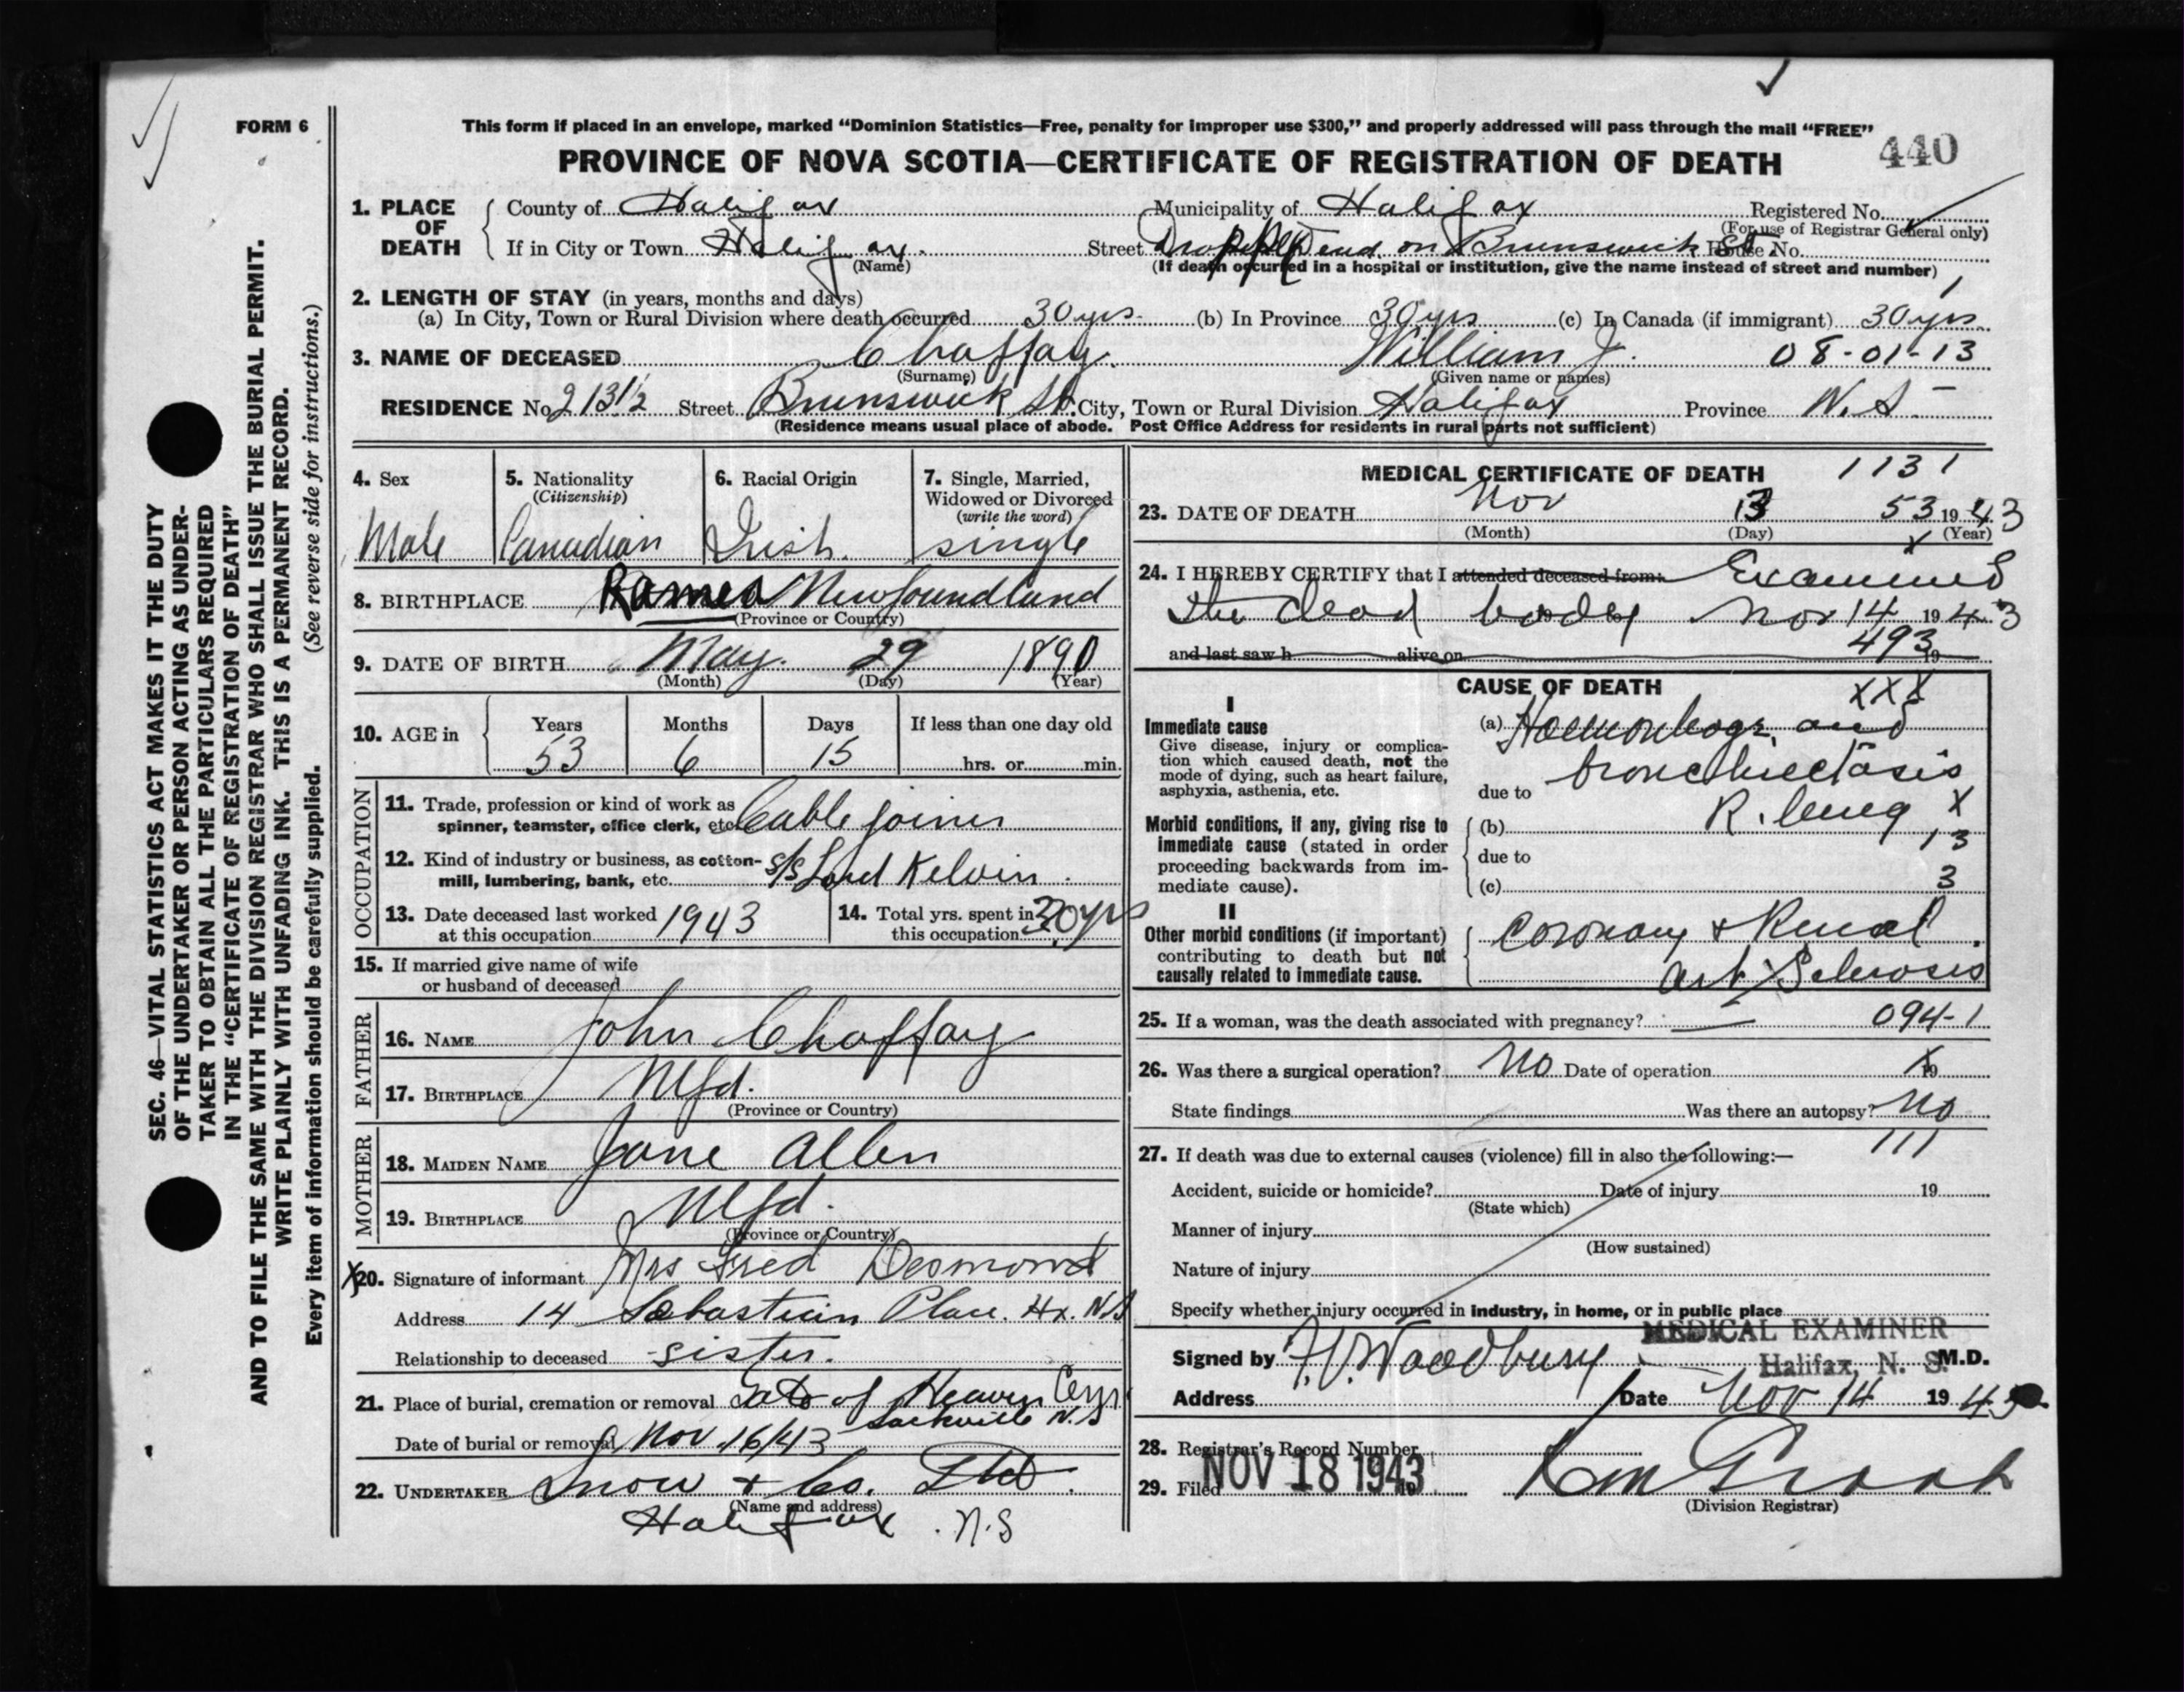 FORM 6
This form if placed in an envelope, marked “Dominion Statistics—Free, penalty for improper use $300,” and properly addressed will pass through the mail “FREE”
PROVINCE OF NOVA SCOTIA—CERTIFICATE OF REGISTRATION OF DEATH 440
1. PLACE OF DEATH
County of Halifax Municipality of Halifax Registered No.
(For use of Registrar General only)
If in City or Town Halifax Street Dropped Dead on Brunswick St House No.
(Name) (If death occurred in a hospital or institution, give the name instead of street and number)
2. LENGTH OF STAY (in years, months and days)
(a) In City, Town or Rural Division where death occurred 30 yrs. (b) In Province 30 yrs (c) In Canada (if immigrant) 30 yrs.
3. NAME OF DECEASED Chaffay William J. 08-01-13
(Surname) (Given name or names)
RESIDENCE No 213 1/2 Street Brunswick St. City, Town or Rural Division Halifax Province N.S.
(Residence means usual place of abode. Post Office Address for residents in rural parts not sufficient)
4. Sex 5. Nationality (Citizenship) 6. Racial Origin 7. Single, Married, Widowed or Divorced (write the word)
Male Canadian Irish. single
8. BIRTHPLACE Ramea Newfoundland
(Province or Country)
9. DATE OF BIRTH May 29 1890
(Month) (Day) (Year)
10. AGE in Years Months Days If less than one day old
53 6 15 hrs. or min.
OCCUPATION
11. Trade, profession or kind of work as
spinner, teamster, office clerk, etc. Cable joiner
12. Kind of industry or business, as cotton-
mill, lumbering, bank, etc. s/s Lord Kelvin.
13. Date deceased last worked at this occupation 1943
14. Total yrs. spent in this occupation 30 yrs
15. If married give name of wife
or husband of deceased
FATHER
16. NAME John Chaffay
17. BIRTHPLACE Nfd.
(Province or Country)
MOTHER
18. MAIDEN NAME Jane Allen
19. BIRTHPLACE Nfd.
(Province or Country)
X20. Signature of informant Mrs Fred Desmond
Address 14 Sebastian Place. Hx. N.S
Relationship to deceased sister.
21. Place of burial, cremation or removal Gate of Heaven Cem
Sackville N.S
Date of burial or removal Nov 16/43
22. UNDERTAKER Snow & Co. Ltd.
(Name and address)
Halifax. N.S
MEDICAL CERTIFICATE OF DEATH 1131
23. DATE OF DEATH Nov 13 53 19 43
(Month) (Day) (Year)
24. I HEREBY CERTIFY that I attended deceased from: Examined
the dead body Nov 14 19 43
493
and last saw h alive on 19
CAUSE OF DEATH XXX
I
Immediate cause
Give disease, injury or complica-
tion which caused death, not the
mode of dying, such as heart failure,
asphyxia, asthenia, etc.
(a) Haemorrhage and
bronchiectasis
due to
R. lung X
Morbid conditions, if any, giving rise to
immediate cause (stated in order
proceeding backwards from im-
mediate cause).
(b) 13
due to
(c) 3
II
Other morbid conditions (if important)
contributing to death but not
causally related to immediate cause.
Coronary & Renal
Art. Sclerosis
25. If a woman, was the death associated with pregnancy? — 094-1
26. Was there a surgical operation? No Date of operation 19
State findings Was there an autopsy? No
111
27. If death was due to external causes (violence) fill in also the following:—
Accident, suicide or homicide? Date of injury 19
(State which)
Manner of injury
(How sustained)
Nature of injury
Specify whether injury occurred in industry, in home, or in public place
MEDICAL EXAMINER
Halifax, N. S.
Signed by Woodbury M.D.
Address Date Nov 14 19 43
28. Registrar's Record Number
29. Filed NOV 18 1943 19
(Division Registrar)
SEC. 46—VITAL STATISTICS ACT MAKES IT THE DUTY
OF THE UNDERTAKER OR PERSON ACTING AS UNDER-
TAKER TO OBTAIN ALL THE PARTICULARS REQUIRED
IN THE “CERTIFICATE OF REGISTRATION OF DEATH”
AND TO FILE THE SAME WITH THE DIVISION REGISTRAR WHO SHALL ISSUE THE BURIAL PERMIT.
WRITE PLAINLY WITH UNFADING INK. THIS IS A PERMANENT RECORD.
Every item of information should be carefully supplied. (See reverse side for instructions.)